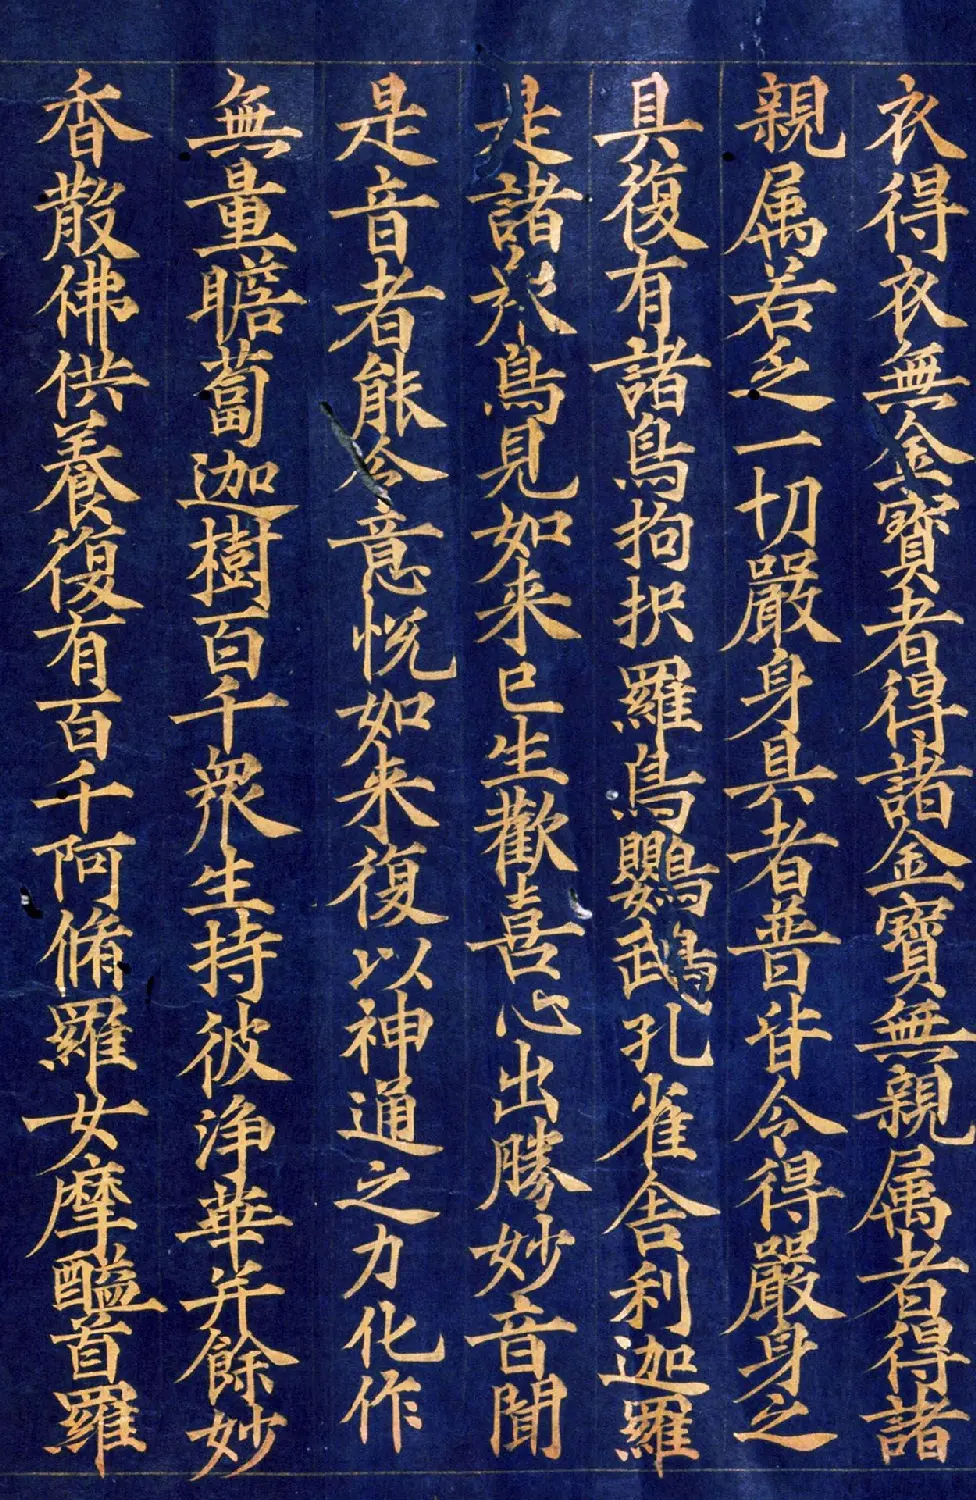 衣得衣無金寳者得諸金寳無親属者得諸
親属若乏一切嚴身具者普皆令得嚴身之
具復有諸鳥拘抧羅鳥鸚鵡孔雀舎利迦羅
是諸衆鳥見如来已生歡喜心出勝妙音聞
是音者能令意恱如来復以神通之力化作
無量瞻蔔迦樹百千衆生持彼浄華并餘妙
香散佛供養復有百千阿脩羅女摩醯首羅